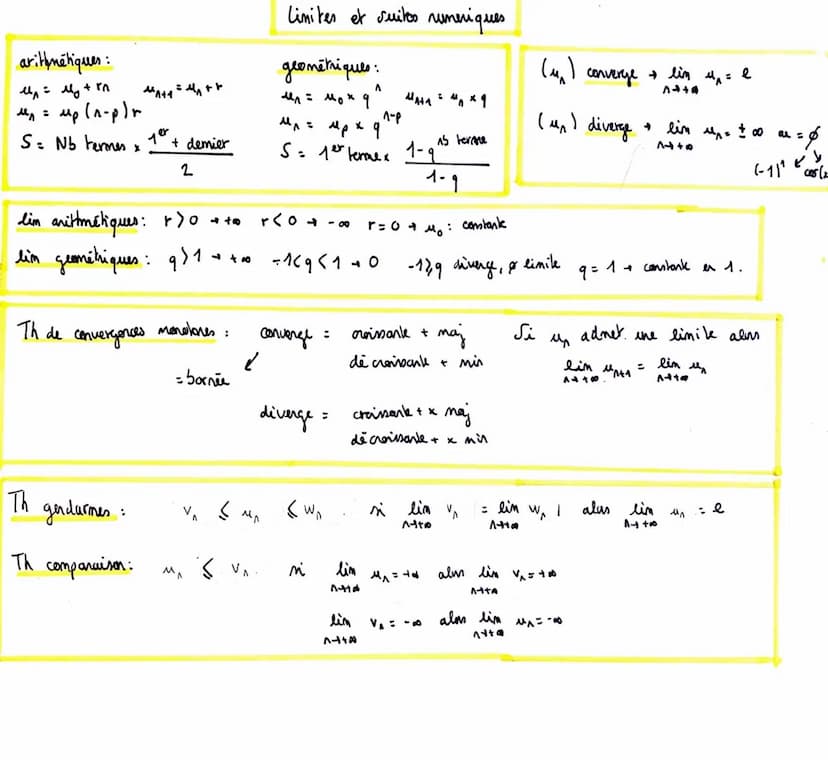 limites et suites numeriques
arithmétiques :
uₙ = u₀ + rn uₙ₊₁ = uₙ + r
uₙ = uₚ (n-p) r
S = Nb termes × (1er + dernier)/2
géométriques :
uₙ = u₀ × qⁿ uₙ₊₁ = uₙ × q
uₙ = uₚ × qⁿ⁻ᵖ
S = 1er terme × (1 - q^Nb terme)/(1 - q)
(uₙ) converge → lim uₙ = l
n→+∞
(uₙ) diverge → lim uₙ = ± ∞ ou = ∅
n→+∞
(-1)ⁿ cos(
lim arithmétiques : r > 0 → +∞ r < 0 → -∞ r = 0 → u₀ : constante
lim géométriques : q > 1 → +∞ -1 < q < 1 → 0 -1 ⩾ q diverge, ∅ limite q = 1 → constante en 1.
Th de convergences monotones : converge = croissante + maj
décroissante + min
= bornée
diverge = croissante + × maj
décroissante + × min
Si uₙ admet une limite alors
lim uₙ₊₁ = lim uₙ
n→+∞ n→+∞
Th gendarmes : vₙ ⩽ uₙ ⩽ wₙ . si lim vₙ = lim wₙ , alors lim uₙ = l
n→+∞ n→+∞ n→+∞
Th comparaison : uₙ ⩽ vₙ . si lim uₙ = +∞ alors lim vₙ = +∞
n→+∞ n→+∞
lim vₙ = -∞ alors lim uₙ = -∞
n→+∞ n→+∞